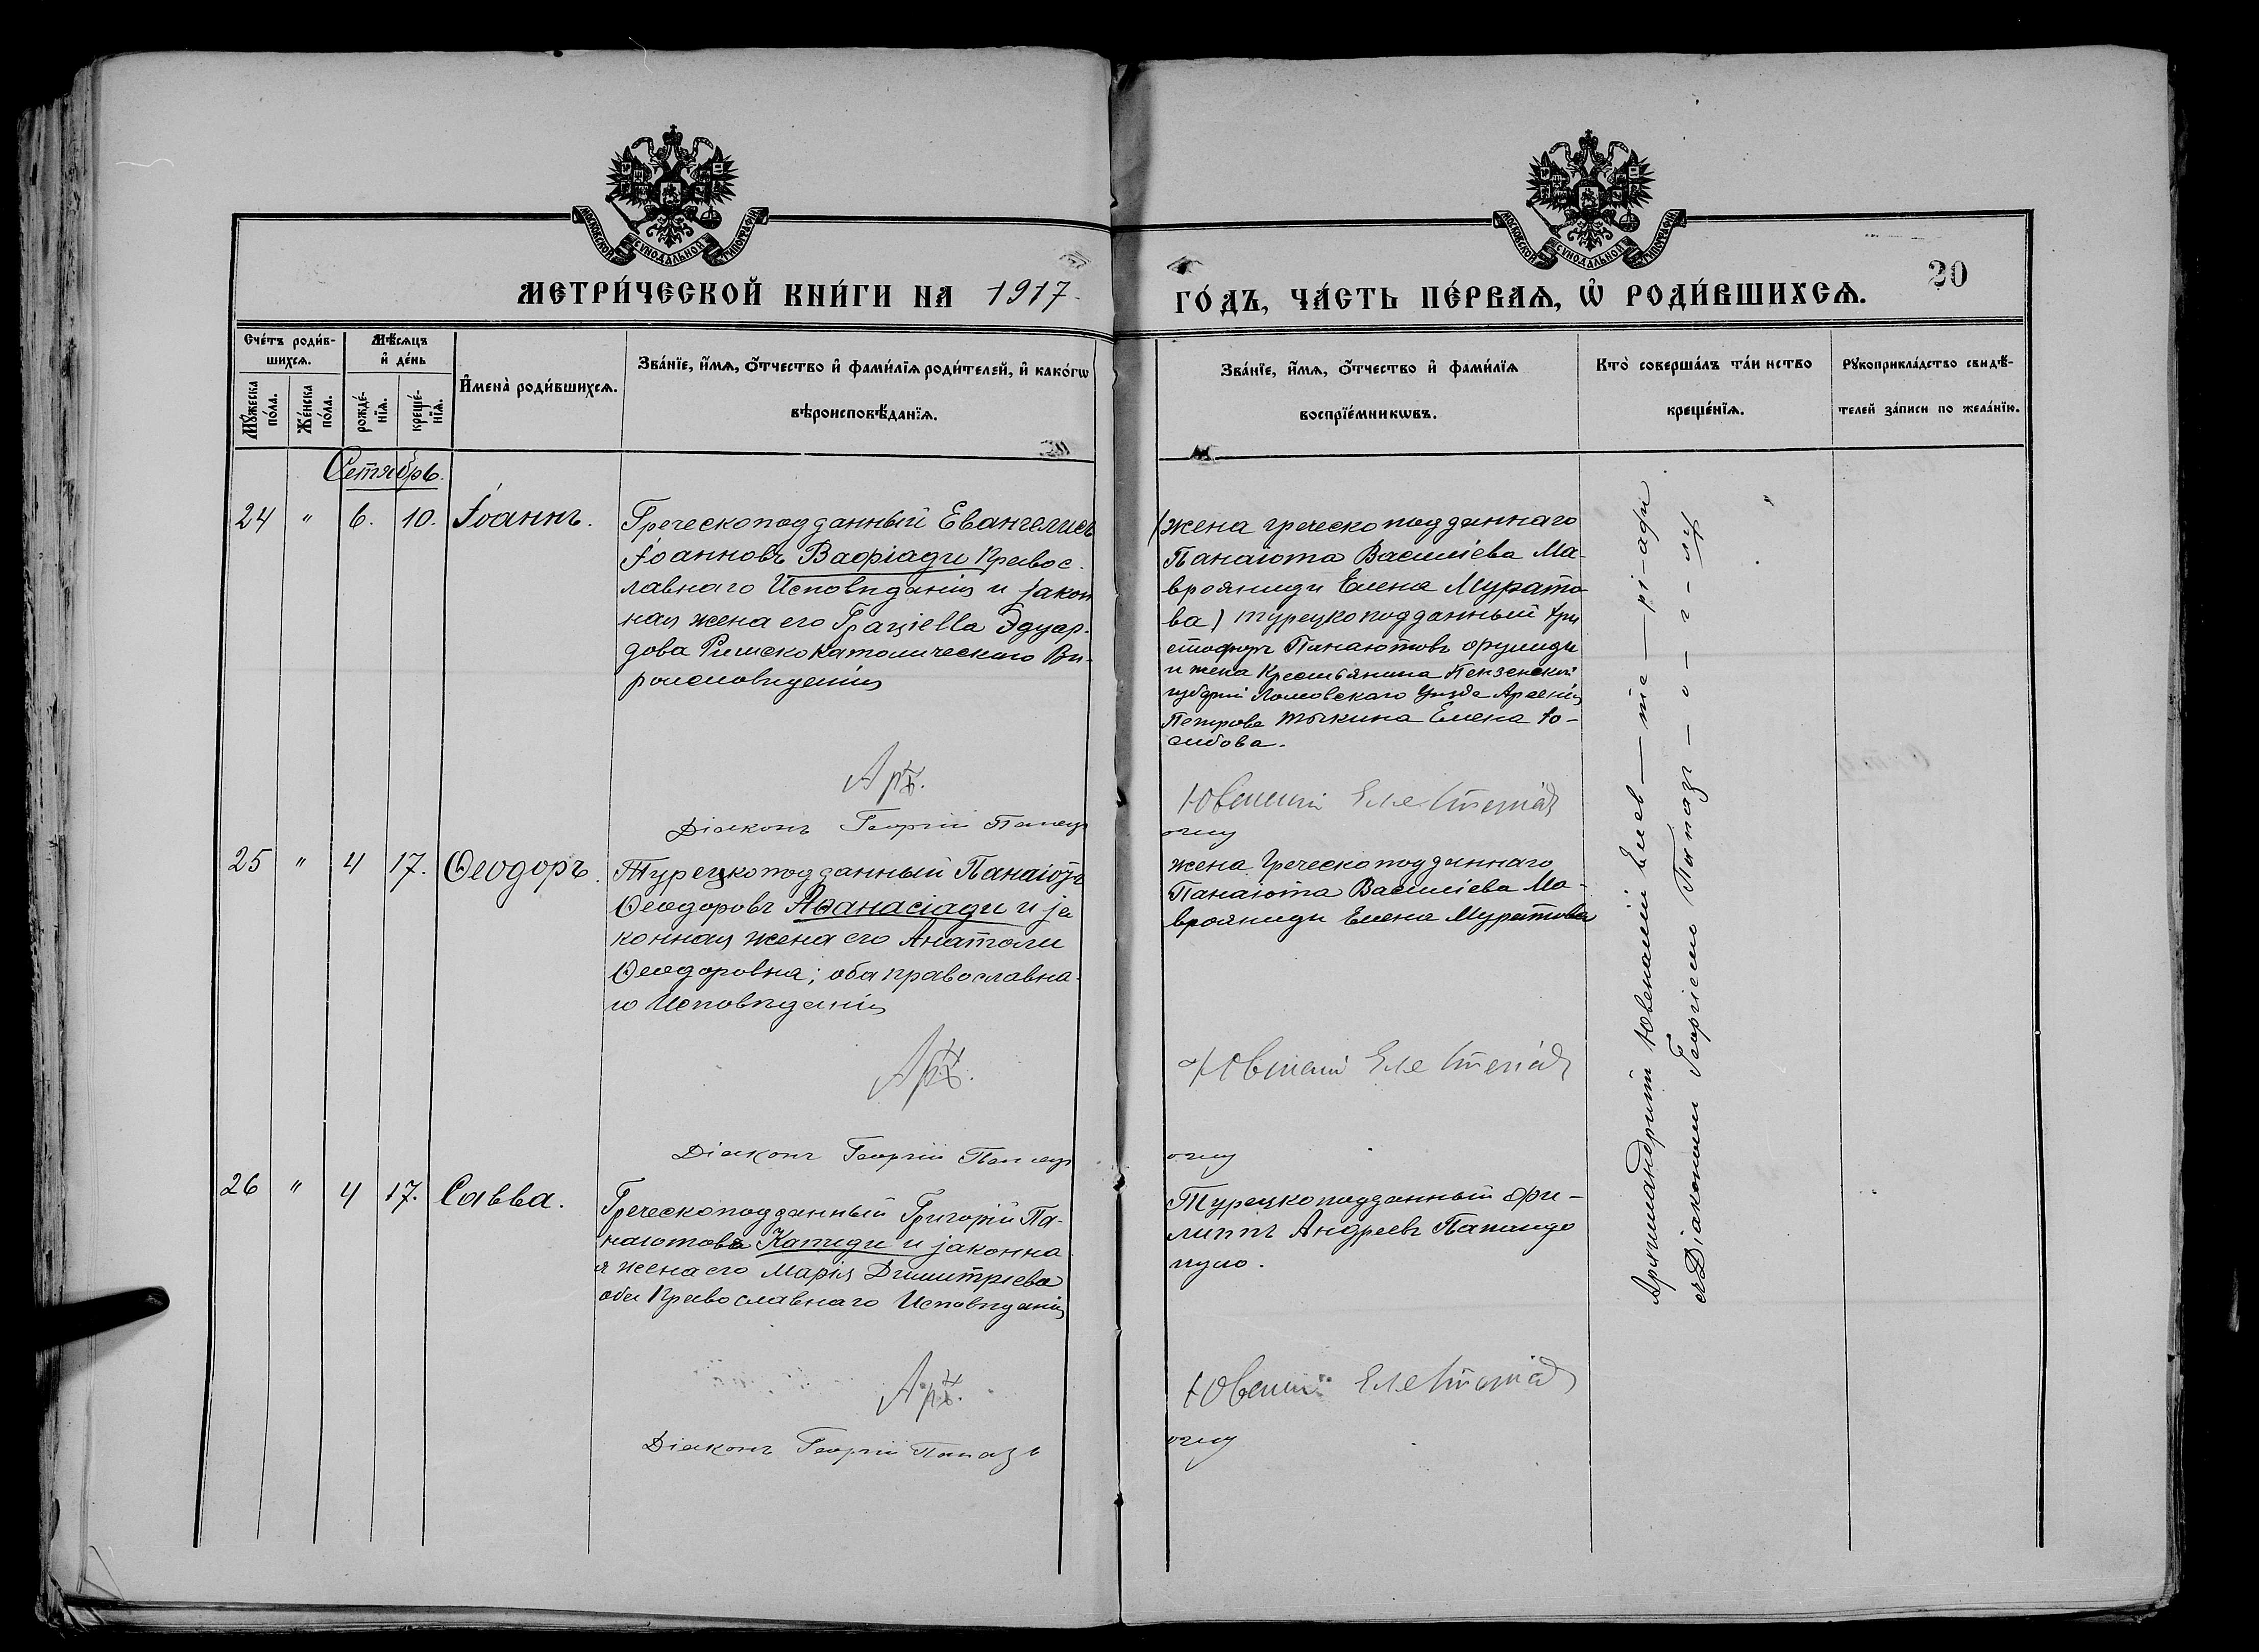 МОСКОВСКОЙ СУНОДАЛЬНОЙ ТИПОГРАФІИ
МОСКОВСКОЙ СУНОДАЛЬНОЙ ТИПОГРАФІИ
МЕТРИ́ЧЕСКОЙ КНИ́ГИ НА 1917.
ГО́ДЪ, ЧА́СТЬ ПЕ́РВАѦ, Ѡ҆ РОДИ́ВШИХСѦ. 20
Сче́тъ роди́в-
шихсѧ.
Мꙋжеска по́ла.
Же́нска по́ла.
Мѣ́сѧцъ
и҆ де́нь
рожде́-
нїѧ.
креще́-
нїѧ.
И҆мена̀ роди́вшихсѧ.
Зва́нїе, и҆́мѧ, ѻ҆́тчество и҆ фами́лїѧ роди́телей, и҆ како́гѡ
вѣроисповѣ́данїѧ.
Зва́нїе, и҆́мѧ, ѻ҆́тчество и҆ фами́лїѧ
воспрїе́мникѡвъ.
Кто̀ соверша́лъ та́инство
креще́нїѧ.
Рꙋкоприкла́дство свидѣ́-
телей за́писи по жела́нїю.
Сетябрь.
24 " 6. 10. Іоаннъ.
Греческоподданный Евангелисъ
Іоанновъ Вафіади Правос-
лавнаго Исповѣданія и закон
ная жена его Граціella Эдуар-
дова Римскокатолическаго Вѣ-
роисповѣданія
Діаконъ Георгій Папазъ
(жена греческоподданнаго
Панаіота Василіева Ма-
врояниди Елена Мурато
ва) турецкоподданный Хри
стофоръ Панаіотовъ Фулиди
и жена Крестьянина Пензенской
губерніи Ломовскаго Уѣзда Арсенія
Петрова Тыкина Елена Іо-
сифова.
25 " 4 17. Ѳеодоръ.
Турецкоподданный Панаіотъ
Ѳеодоровъ Аѳанасіади и за
конная жена его Анатоли
Ѳеодоровна; оба православна-
го Исповѣданія
Діаконъ Георгій Папазъ
жена Греческоподданнаго
Панаіота Василіева Ма-
врояниди Елена Муратова
26 " 4 17. Савва.
Греческоподданный Григорій Па-
наіотовъ Капиди и законна
я жена его Марія Димитріева
оба Православнаго Исповѣданія
Діаконъ Георгій Папазъ
Турецкоподданный Фи-
липпъ Андреевъ Папандо
пуло.
Архимандритъ Ювеналій Елев — те — рі — афи
съ Діакономъ Георгіемъ Папазъ — о — г — лу